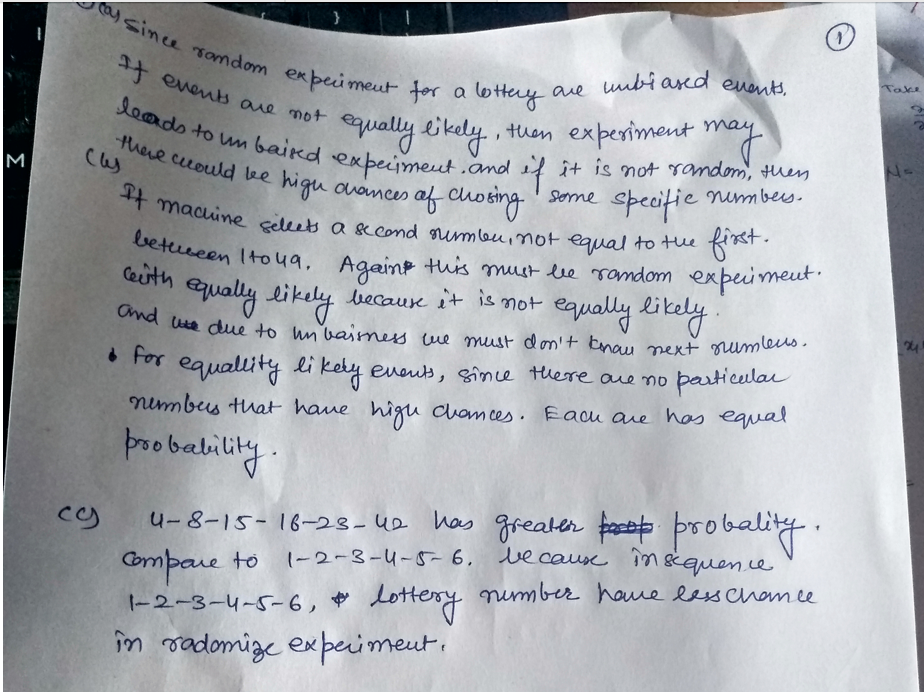 ①
(a) Since random expeiment for a lottery are unbiased events.
If events are not equally likely, then experiment may
leads to un baised expeiment. and if it is not random, then
there would be high chances of chosing some specific numbers.
(b)
If machine selects a second number, not equal to the first.
between 1 to 49. Again this must be random expeiment.
with equally likely because it is not equally likely.
and due to un bairness we must don't know next numbers.
for equallity likely events, since there are no particular
numbers that have high chances. Each are has equal
probability.
(c) 4-8-15-16-23-42 has greater probality.
compare to 1-2-3-4-5-6. because in sequence
1-2-3-4-5-6, lottery number have less chance
in radomize expeiment.
M
Take
N=